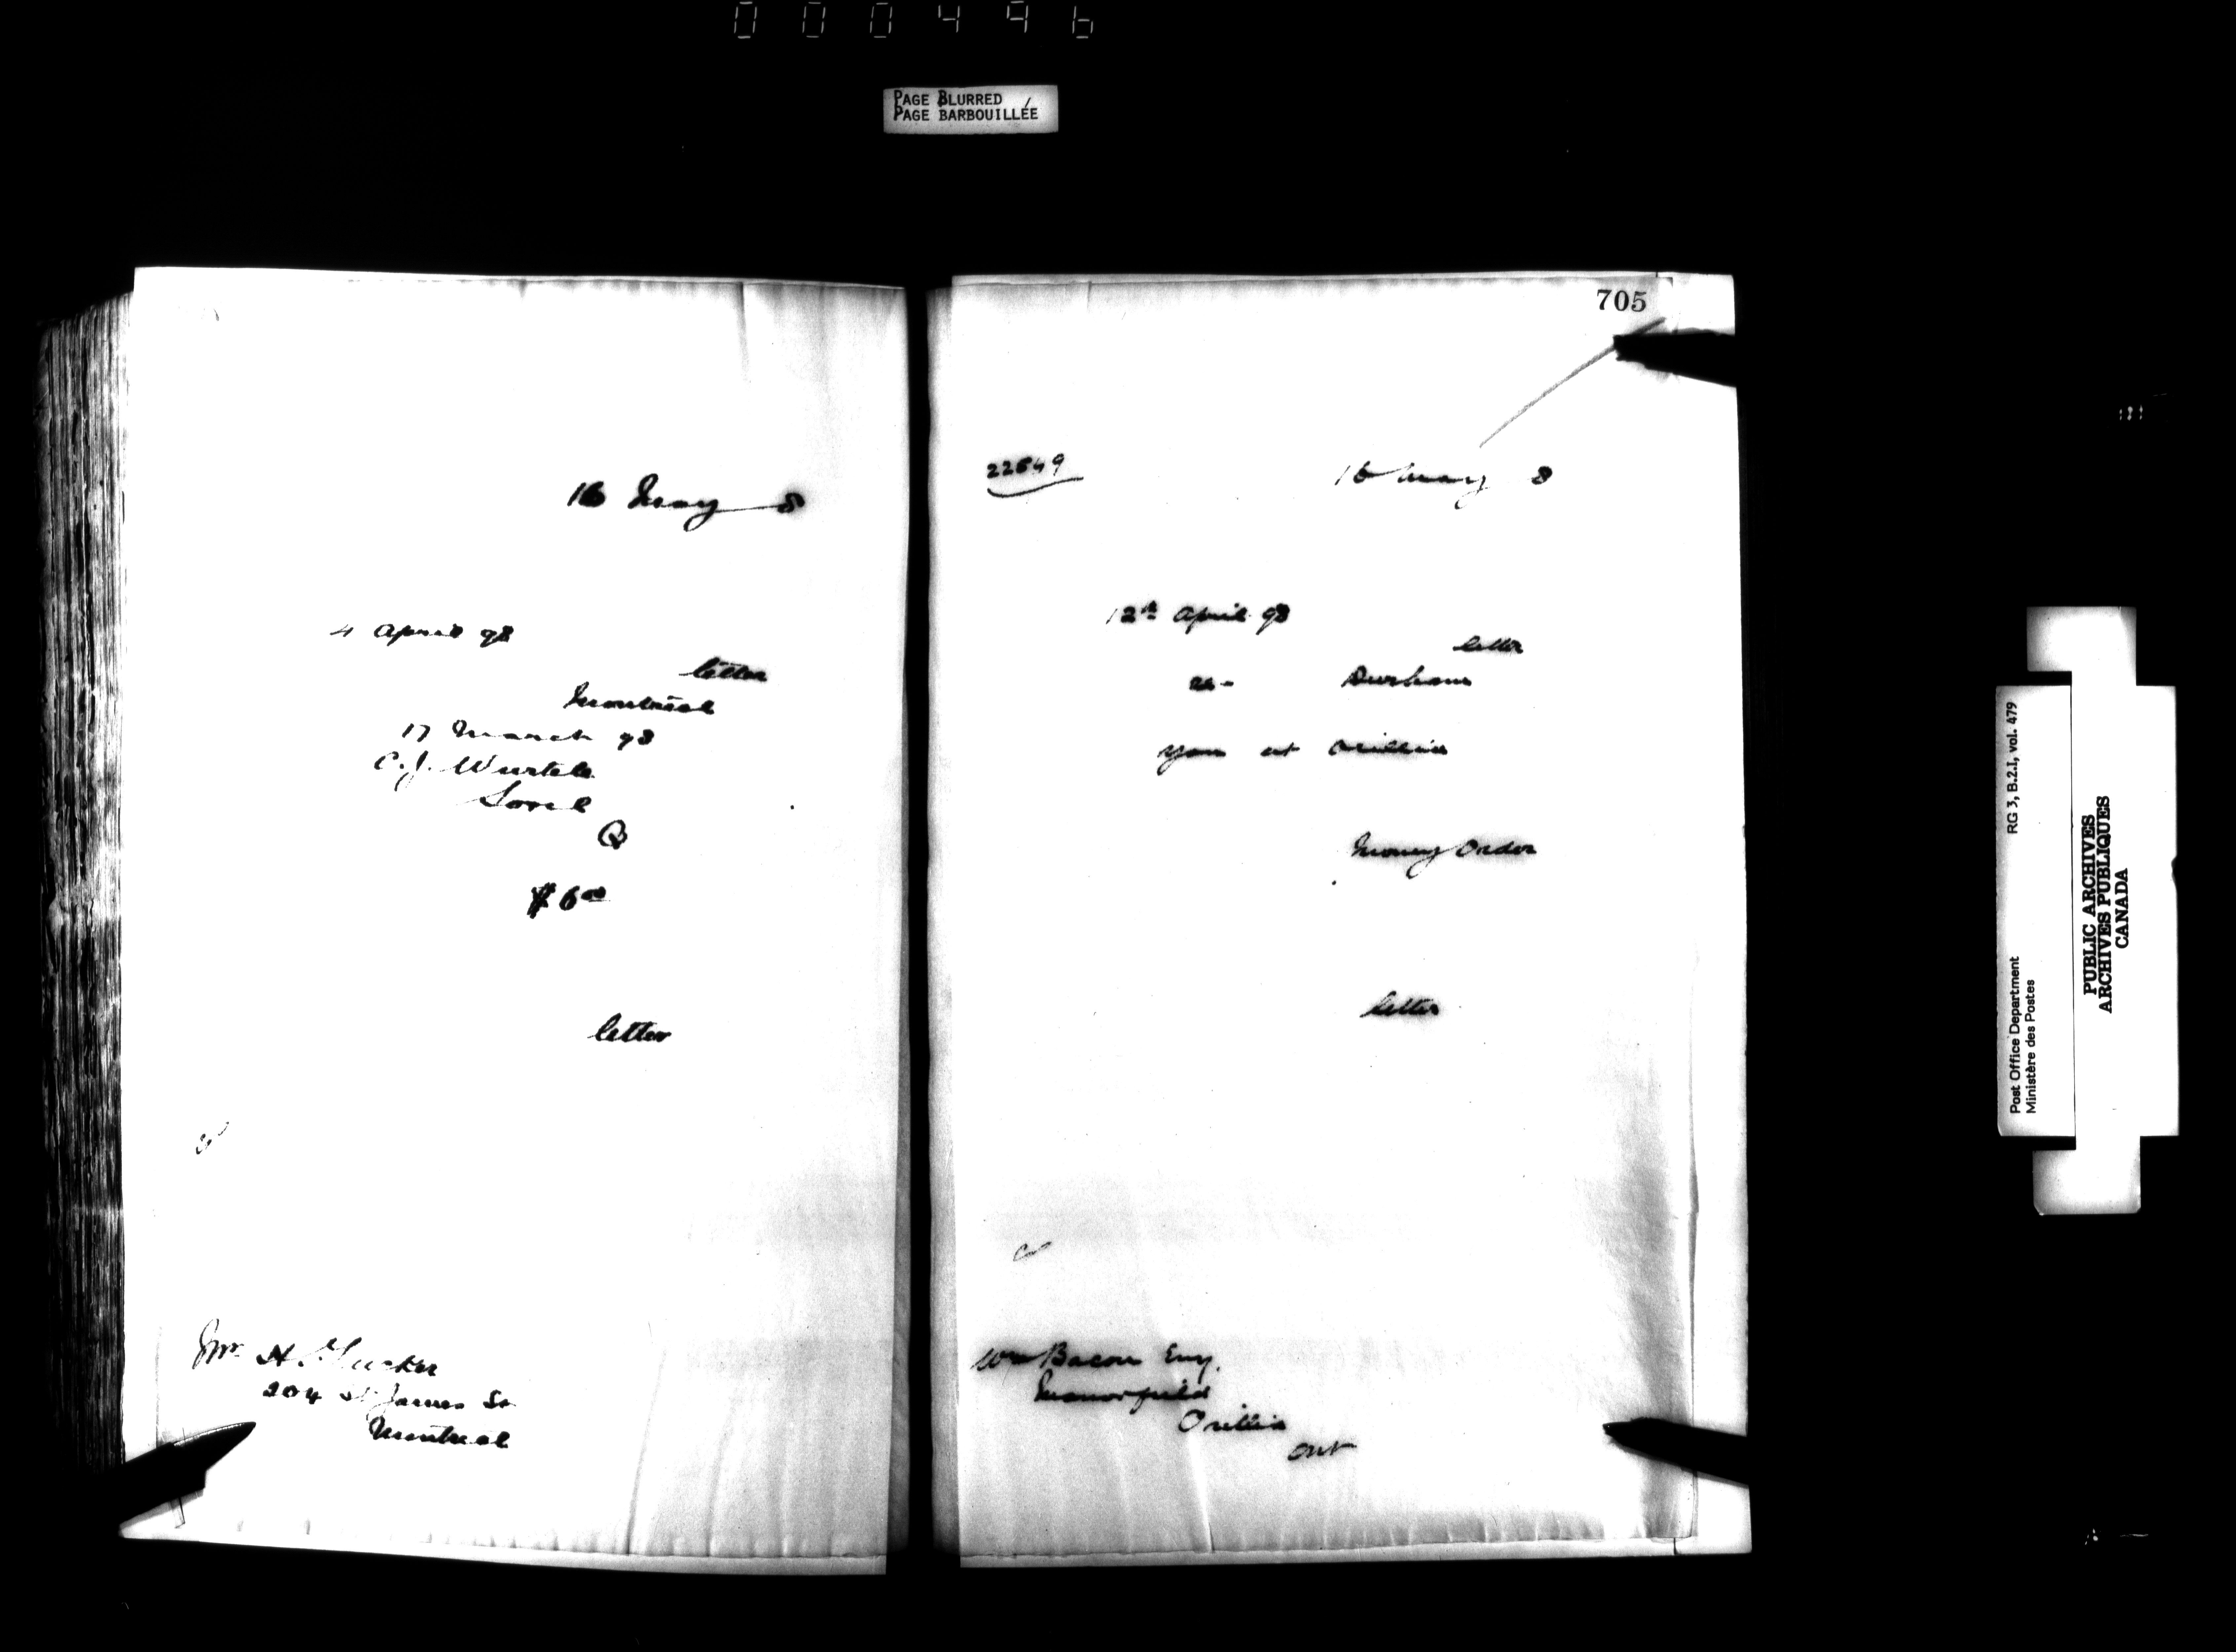 000496
PAGE BLURRED
PAGE BARBOUILLÉE
16 May 8
4 April 98
letter
Montreal
17 March 98
C. J. Wurtele
Sorel
Q
$6 00
letter
Mr H. Tucker
204 St James St
Montreal
705
22649
16 May 8
12th April 98
letter
Durham
you at Orillia
Money Order
letter
Wm Bacon Esq.
Manorfield
Orillia
Ont
RG 3, B.2.I, vol. 479
Post Office Department
Ministère des Postes
PUBLIC ARCHIVES
ARCHIVES PUBLIQUES
CANADA